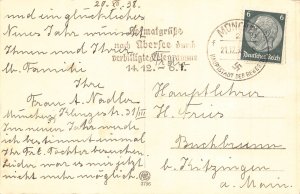 28. XII. 38.
und ein glückliches
Neues Jahr wünscht
Ihnen und Ihrer
w. Familie
Ihre
Frau A. Nadler
München, Klugstr. 31/III
Im neuen Jahre werde
ich
Ihr Frl. Tochter besuchen
Leider war es mir jetzt
nicht mehr möglich.
Heimatgrüße
nach Übersee durch
verbilligte Telegramme
14.12.-6.1.
MÜNCHEN
HAUPTSTADT DER BEWEGUNG
6 6
Deutsches Reich
Hauptlehrer
H. Fries
Buchbrunn
b. Kitzingen
a. Main